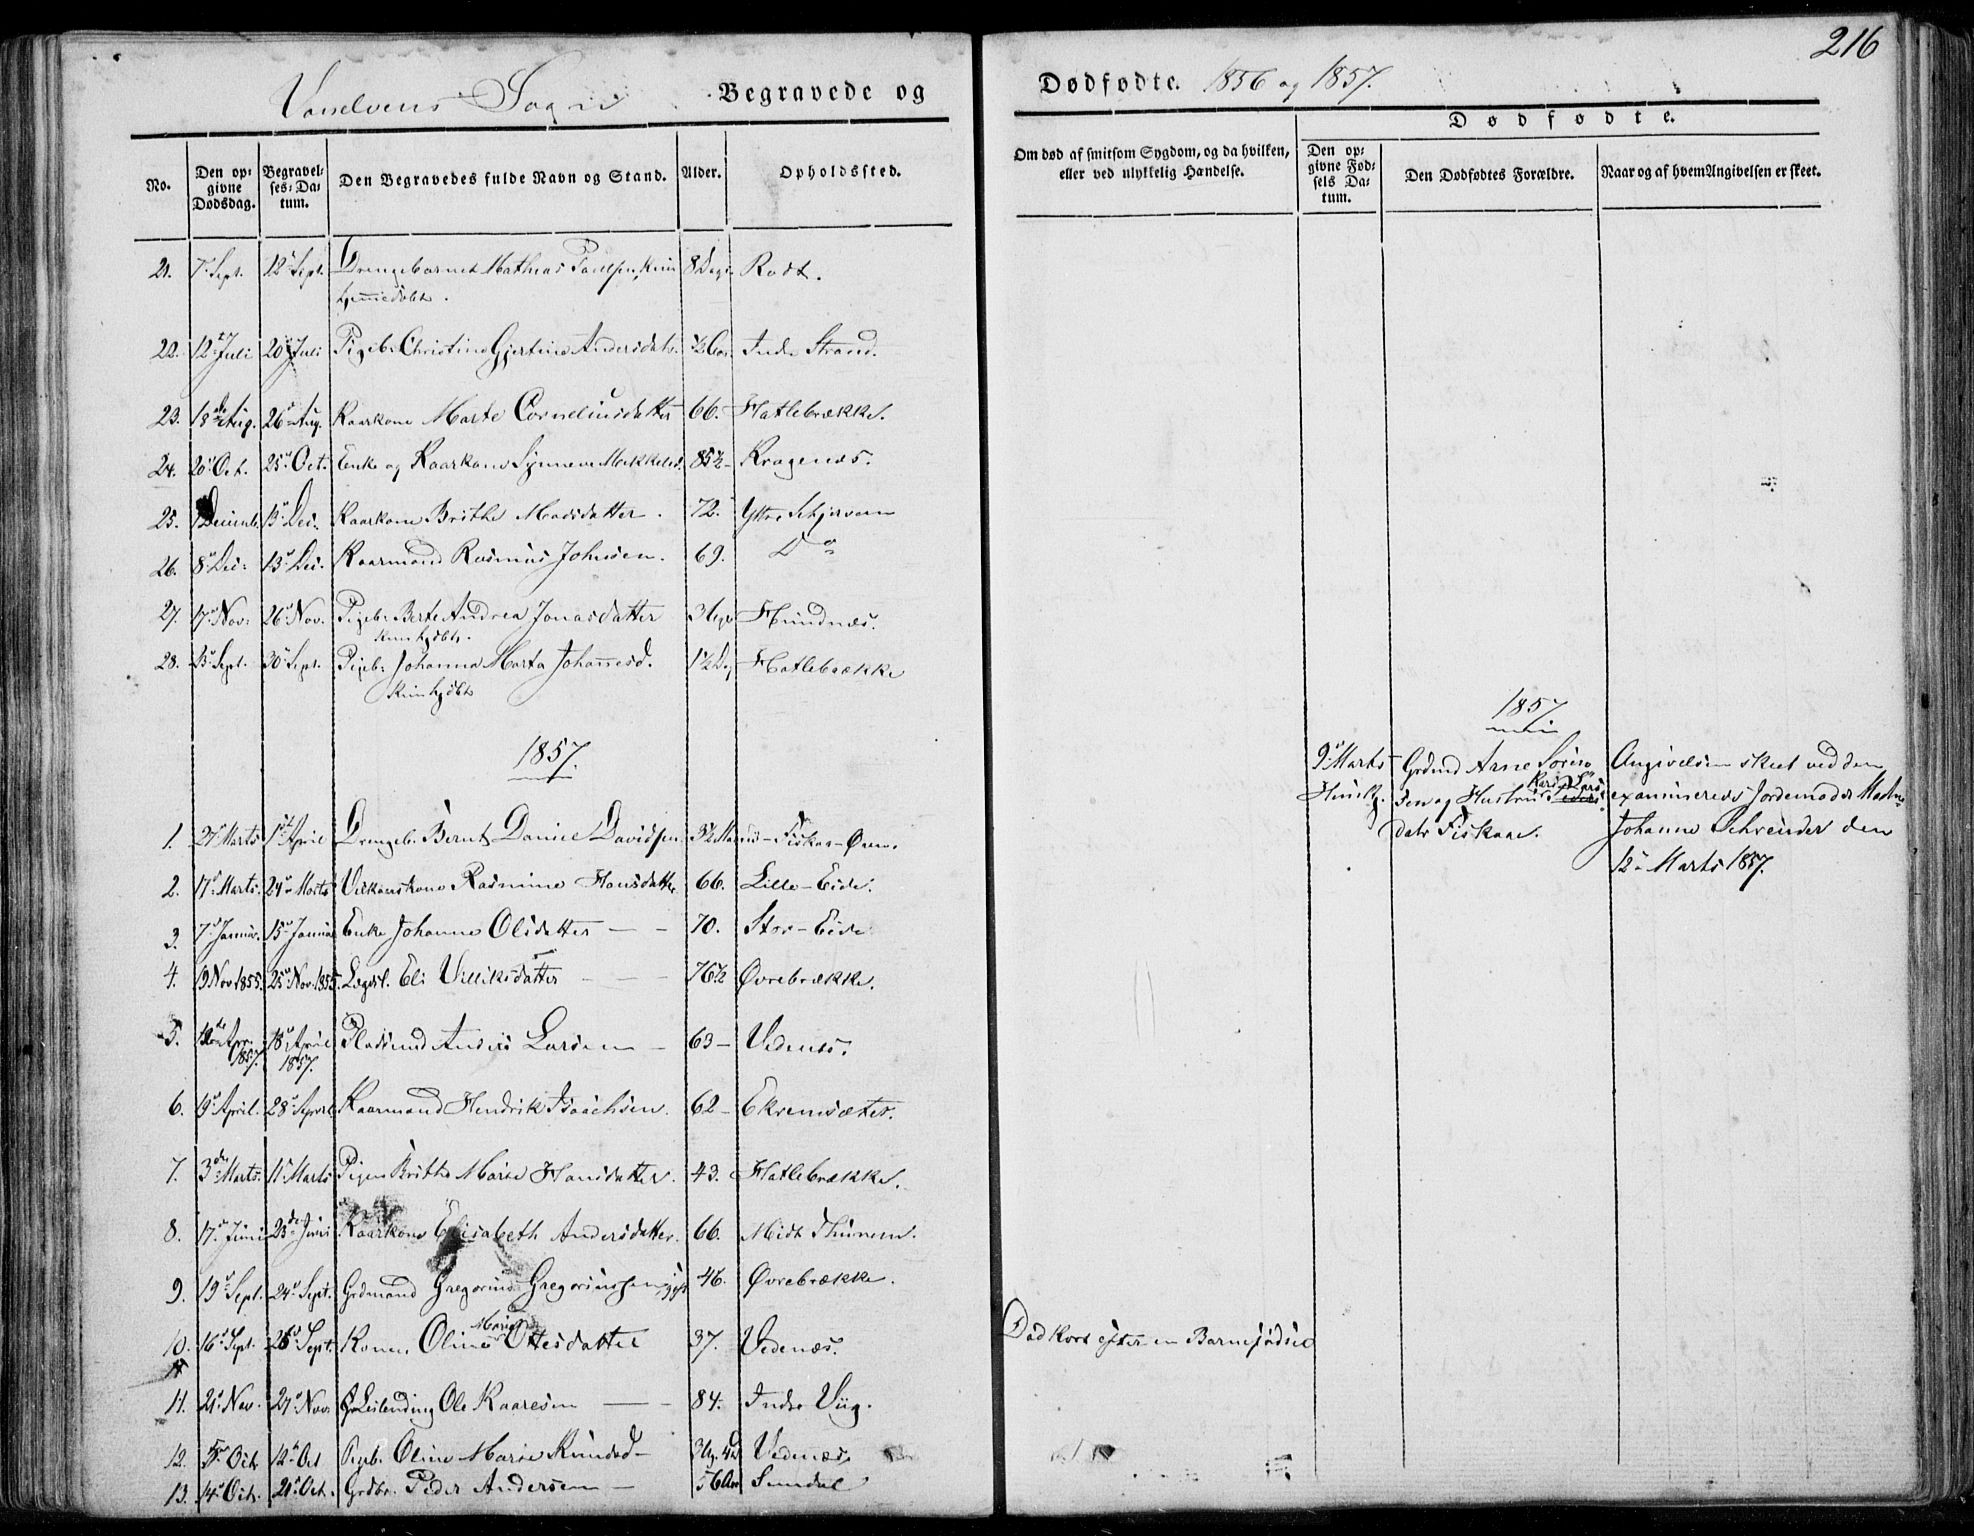 216
Vanelvens Sogn Begravede og Dødfødte. 1856 og 1857.
No. Den opgivne Dødsdag. Begravelses-Datum. Den Begravedes fulde Navn og Stand. Alder. Opholdssted.
Om død af smitsom Sygdom, og da hvilken, eller ved ulykkelig Hændelse.
Dødfødte.
Den opgivne Fødsels Datum. Den Dødfødtes Forældre. Naar og af hvem Angivelsen er skeet.
21. 7 Sept. 12 Sept. Drengebarnet Mathias Paulsen, kun 8 Dage Rødt.
hjemmedøbt.
22. 12 Juli 20 Juli Pigeb. Christine Gjertine Andersdatr. ½ Indre Strand.
23. 18de Aug. 26 Aug. Kaarkone Marte Corneliusdatter 66. Hatlebrække.
24. 20 Oct. 25 Oct. Enke og Kaarkone Synneve Mikkelsd. 85½ Kragenæs.
25. Decemb. 13 Dec. Kaarkone Brithe Madsdatter. 72. Yttre Skjerven
26. 8 Dec: 13 Dec. Kaarmand Rasmus Johnsen. 69. Do
27. 17 Nov: 26 Nov. Pigeb: Berte Andrea Jonasdatter Hundnæs.
kun hjdbt.
28. 23 Sept. 30 Sept. Pigeb: Johanna Marta Johannesd. 1½ D. Hatlebrække
kun hjdbt
1857.
1. 27 Marts 1st April Drengeb. Bernt Daniel Davidsen 3½ Fiskaa-Øren.
2. 17 Marts. 24 Marts Rasmine Hansdatter 66. Lille-Eide.
3. 7 Januar. 15 Januar Enke Johanne Olsdatter — — 70. Stor-Eide
4. 19 Nov 1855. 25 Nov. 1855. Lægdsl. Eli Villiksdatter — — 76½ Øvrebrække.
5. Apr. 1857. 18 April 1857. Pladsmd Anders Larsen — 63 — Vedenæs.
6. 19 April. 28 April Kaarmand Hendrik Isachsen. 62 — Ekremsæter.
7. 3de Marts. 11 Marts Pigen Brithe Marie Hansdatter. 43. Hatlebrække.
8. 17 Juni 23de Juni Kaarkone Elisabeth Andersdatter. 66. Midt Thunem.
9. 19 Sept. 24 Sept. Grdmand Gregorius Gregoriussen, gift 46. Øvrebrække.
10. 16 Sept. 26 Sept. Konen Oline Marie Ottesdatter 37. Vedenæs. Død kort efter en Barnefødsel
11. 21 Nov. 27 Nov. Leilending Ole Kaaresen — — 84. Indre Viig.
12. 5 Oct. 12 Oct Pigeb. Oline Marie Knudsd — Vedenæs
13. 14 Oct. 21 Oct. Grdbr. Peder Andersen — 56 Aar Sundal
1857
9 Marts Grdmd Arne Sørensen og Hustru Lars datr Fiskaae.
Angivelsen skeet ved den
examinerede Jordemoder Mad.
Johanne Schreuder den
12 Marts 1857.